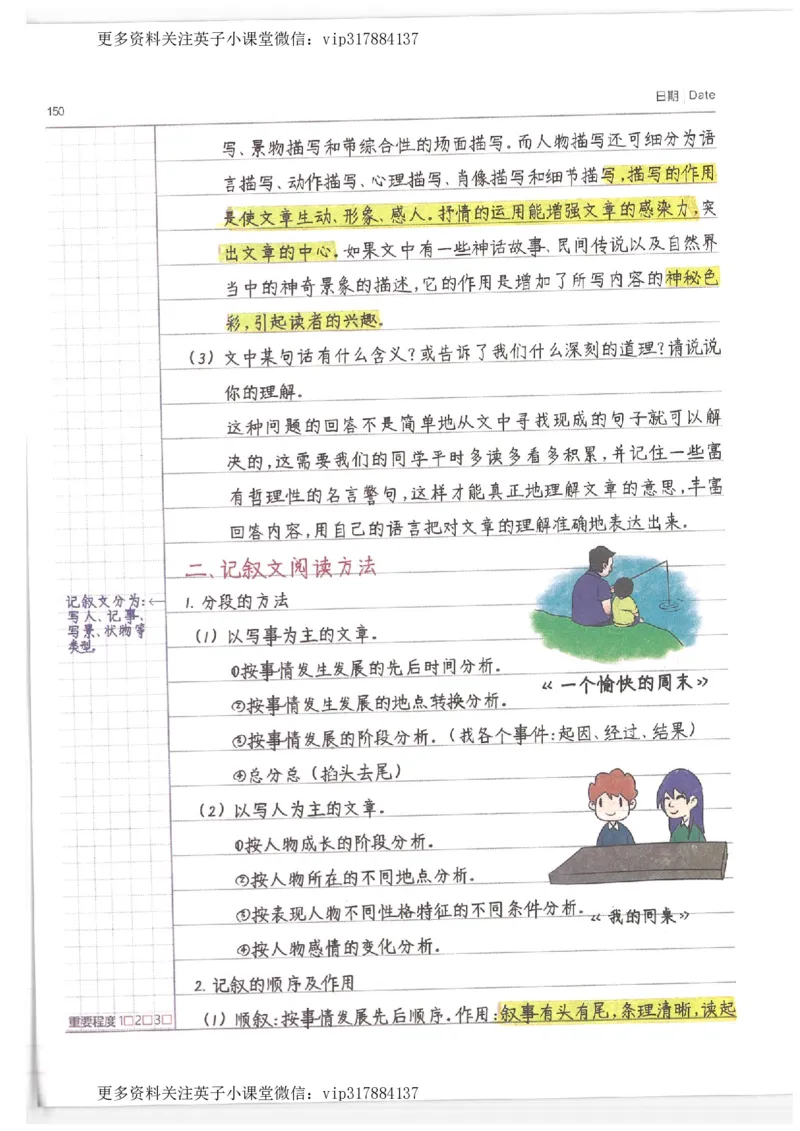 更多资料关注英子小课堂微信：vip317884137
日期 Date
150
写、景物描写和带综合性的场面描写。而人物描写还可细分为语
言描写、动作描写、心理描写、肖像描写和细节描写，描写的作用
是使文章生动、形象、感人。抒情的运用能增强文章的感染力，突
出文章的中心。如果文中有一些神话故事、民间传说以及自然界
当中的神奇景象的描述，它的作用是增加了所写内容的神秘色
彩，引起读者的兴趣。
（3）文中某句话有什么含义？或告诉了我们什么深刻的道理？请说说
你的理解。
这种问题的回答不是简单地从文中寻找现成的句子就可以解
决的，这需要我们的同学平时多读多看多积累，并记住一些富
有哲理性的名言警句，这样才能真正地理解文章的意思，丰富
回答内容，用自己的语言把对文章的理解准确地表达出来。
二、记叙文阅读方法
记叙文分为：←
写人、记事、
写景、状物等
类型。
1. 分段的方法
（1）以写事为主的文章。
①按事情发生发展的先后时间分析。
②按事情发生发展的地点转换分析。
《一个愉快的周末》
③按事情发展的阶段分析。（找各个事件：起因、经过、结果）
④总分总（掐头去尾）
（2）以写人为主的文章。
①按人物成长的阶段分析。
②按人物所在的不同地点分析。
③按表现人物不同性格特征的不同条件分析。
《我的同桌》
④按人物感情的变化分析。
2. 记叙的顺序及作用
（1）顺叙：按事情发展先后顺序。作用：叙事有头有尾，条理清晰，读起
重要程度 1□2□3□
更多资料关注英子小课堂微信：vip317884137